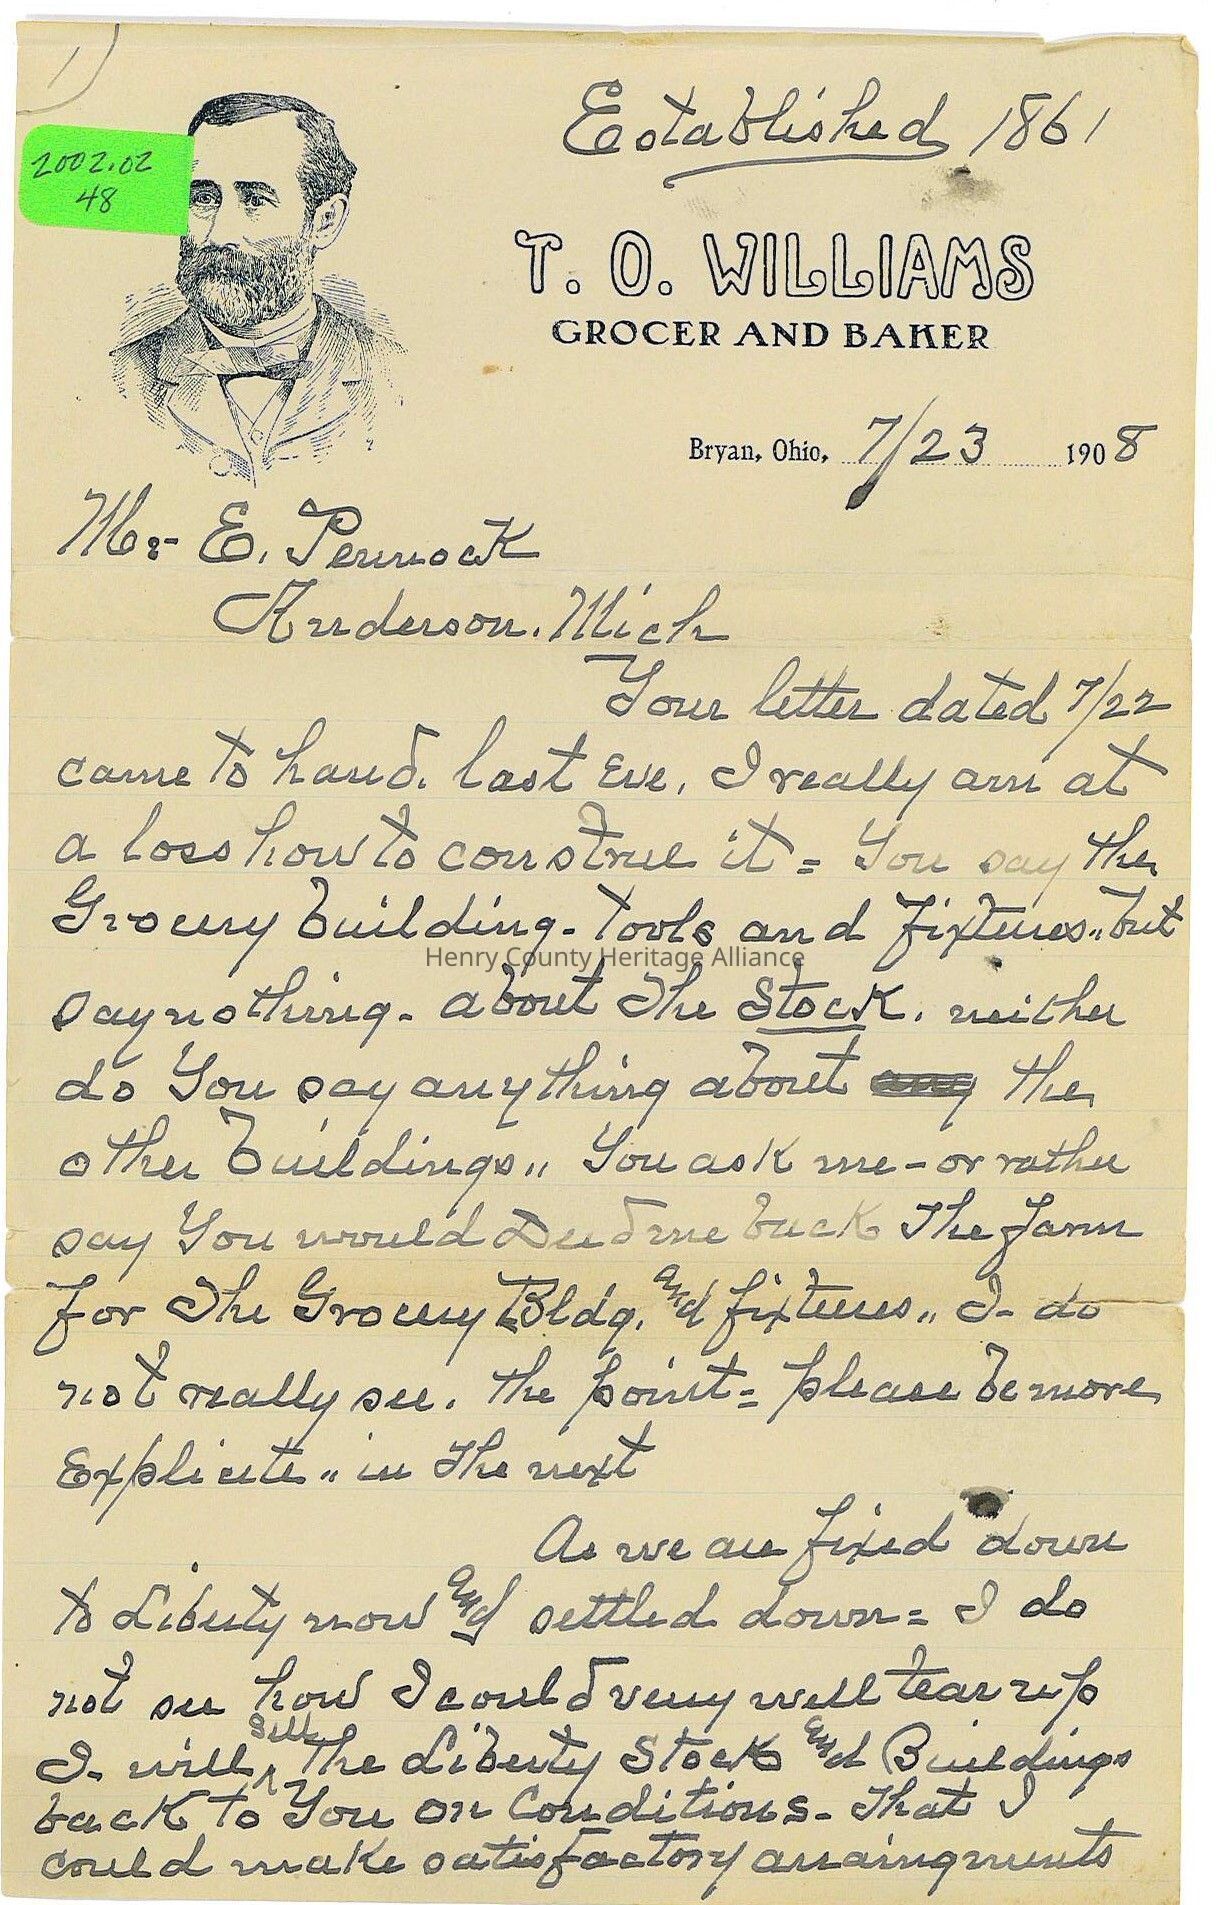 1)
2002.02
48
Established 1861
T. O. WILLIAMS
GROCER AND BAKER
Bryan, Ohio, 7/23 1908
Mr:- E. Pennock
Anderson. Mich
Your letter dated 7/22
came to hand. last Eve, I really am at
a loss how to construe it = You say the
Grocery building - tools and fixtures,, but
Henry County Heritage Alliance
say nothing - about The Stock. neither
do You say anything about any the
other buildings,, You ask me - or rather
say You would Deed me back The farm
for The Grocery Bldg. and fixtures,, I - do
not really see. the point = please be more
Explicite,, in The next
As we are fixed down
to Liberty now and settled down = I do
not see how I could very well tear up
I - will sell The Liberty Stock and Buildings
back to You on Conditions - That I
could make satisfactory arraingments